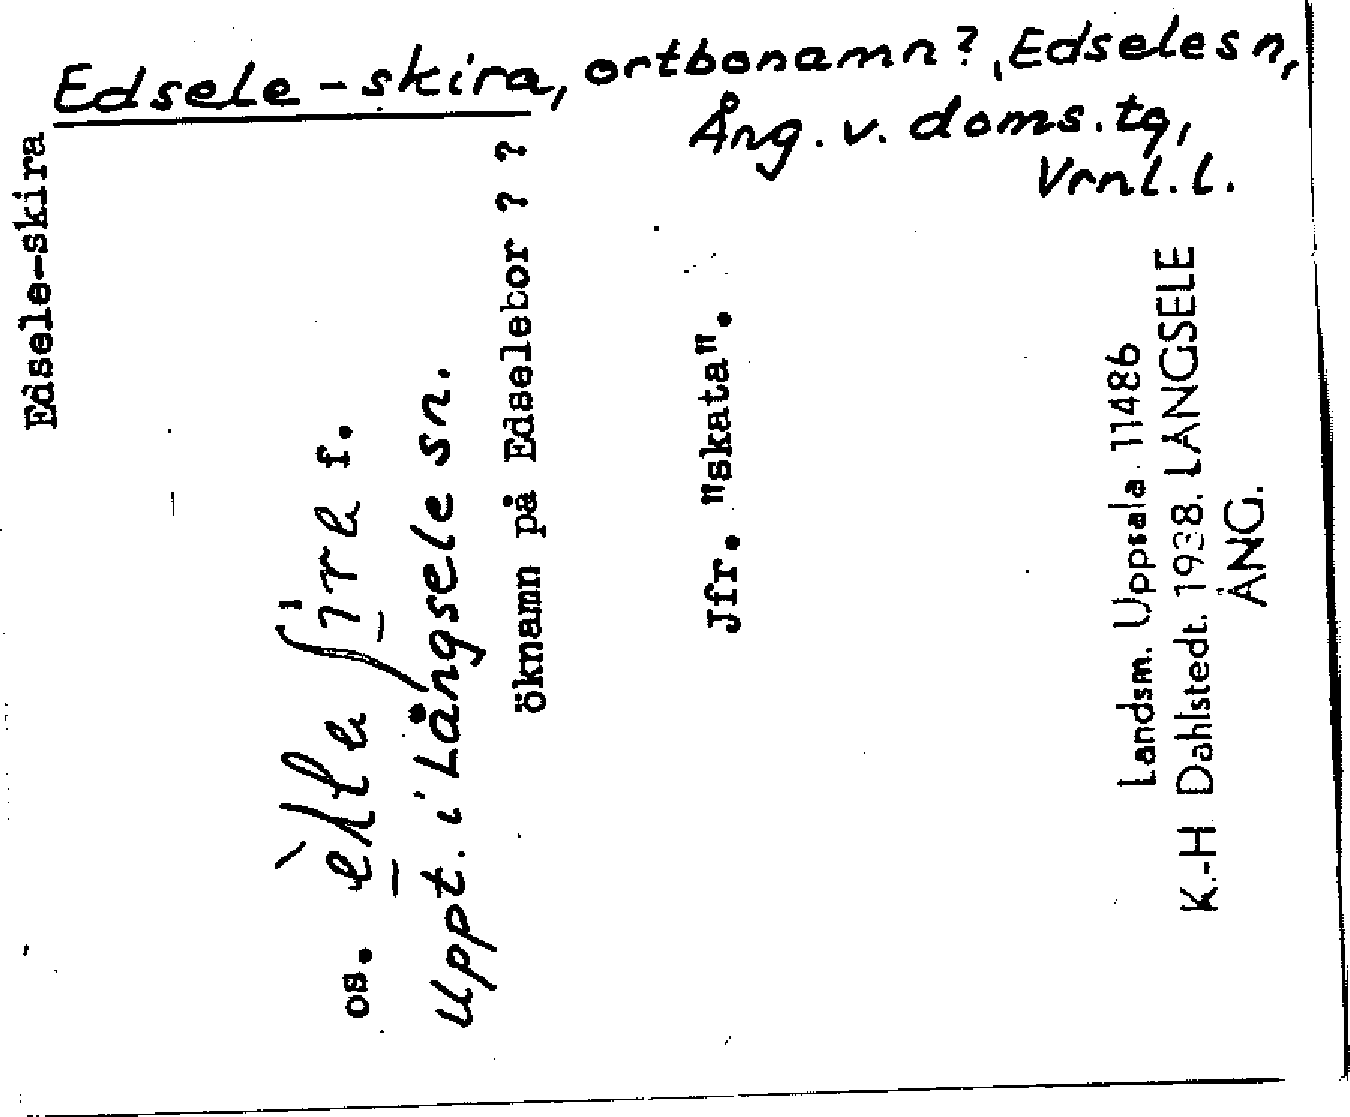 Edsele-skira, ortbonamn?, Edselesn,
Ång. v. doms. tg,
Vrnl. l.
Edsele-skira
os. f.
Uppt. i Långsele sn.
öknamn på Edselebor ? ?
Jfr. "skata".
Landsm. Uppsala 11486
K.-H Dahlstedt. 1938. LÅNGSELE
ÅNG.